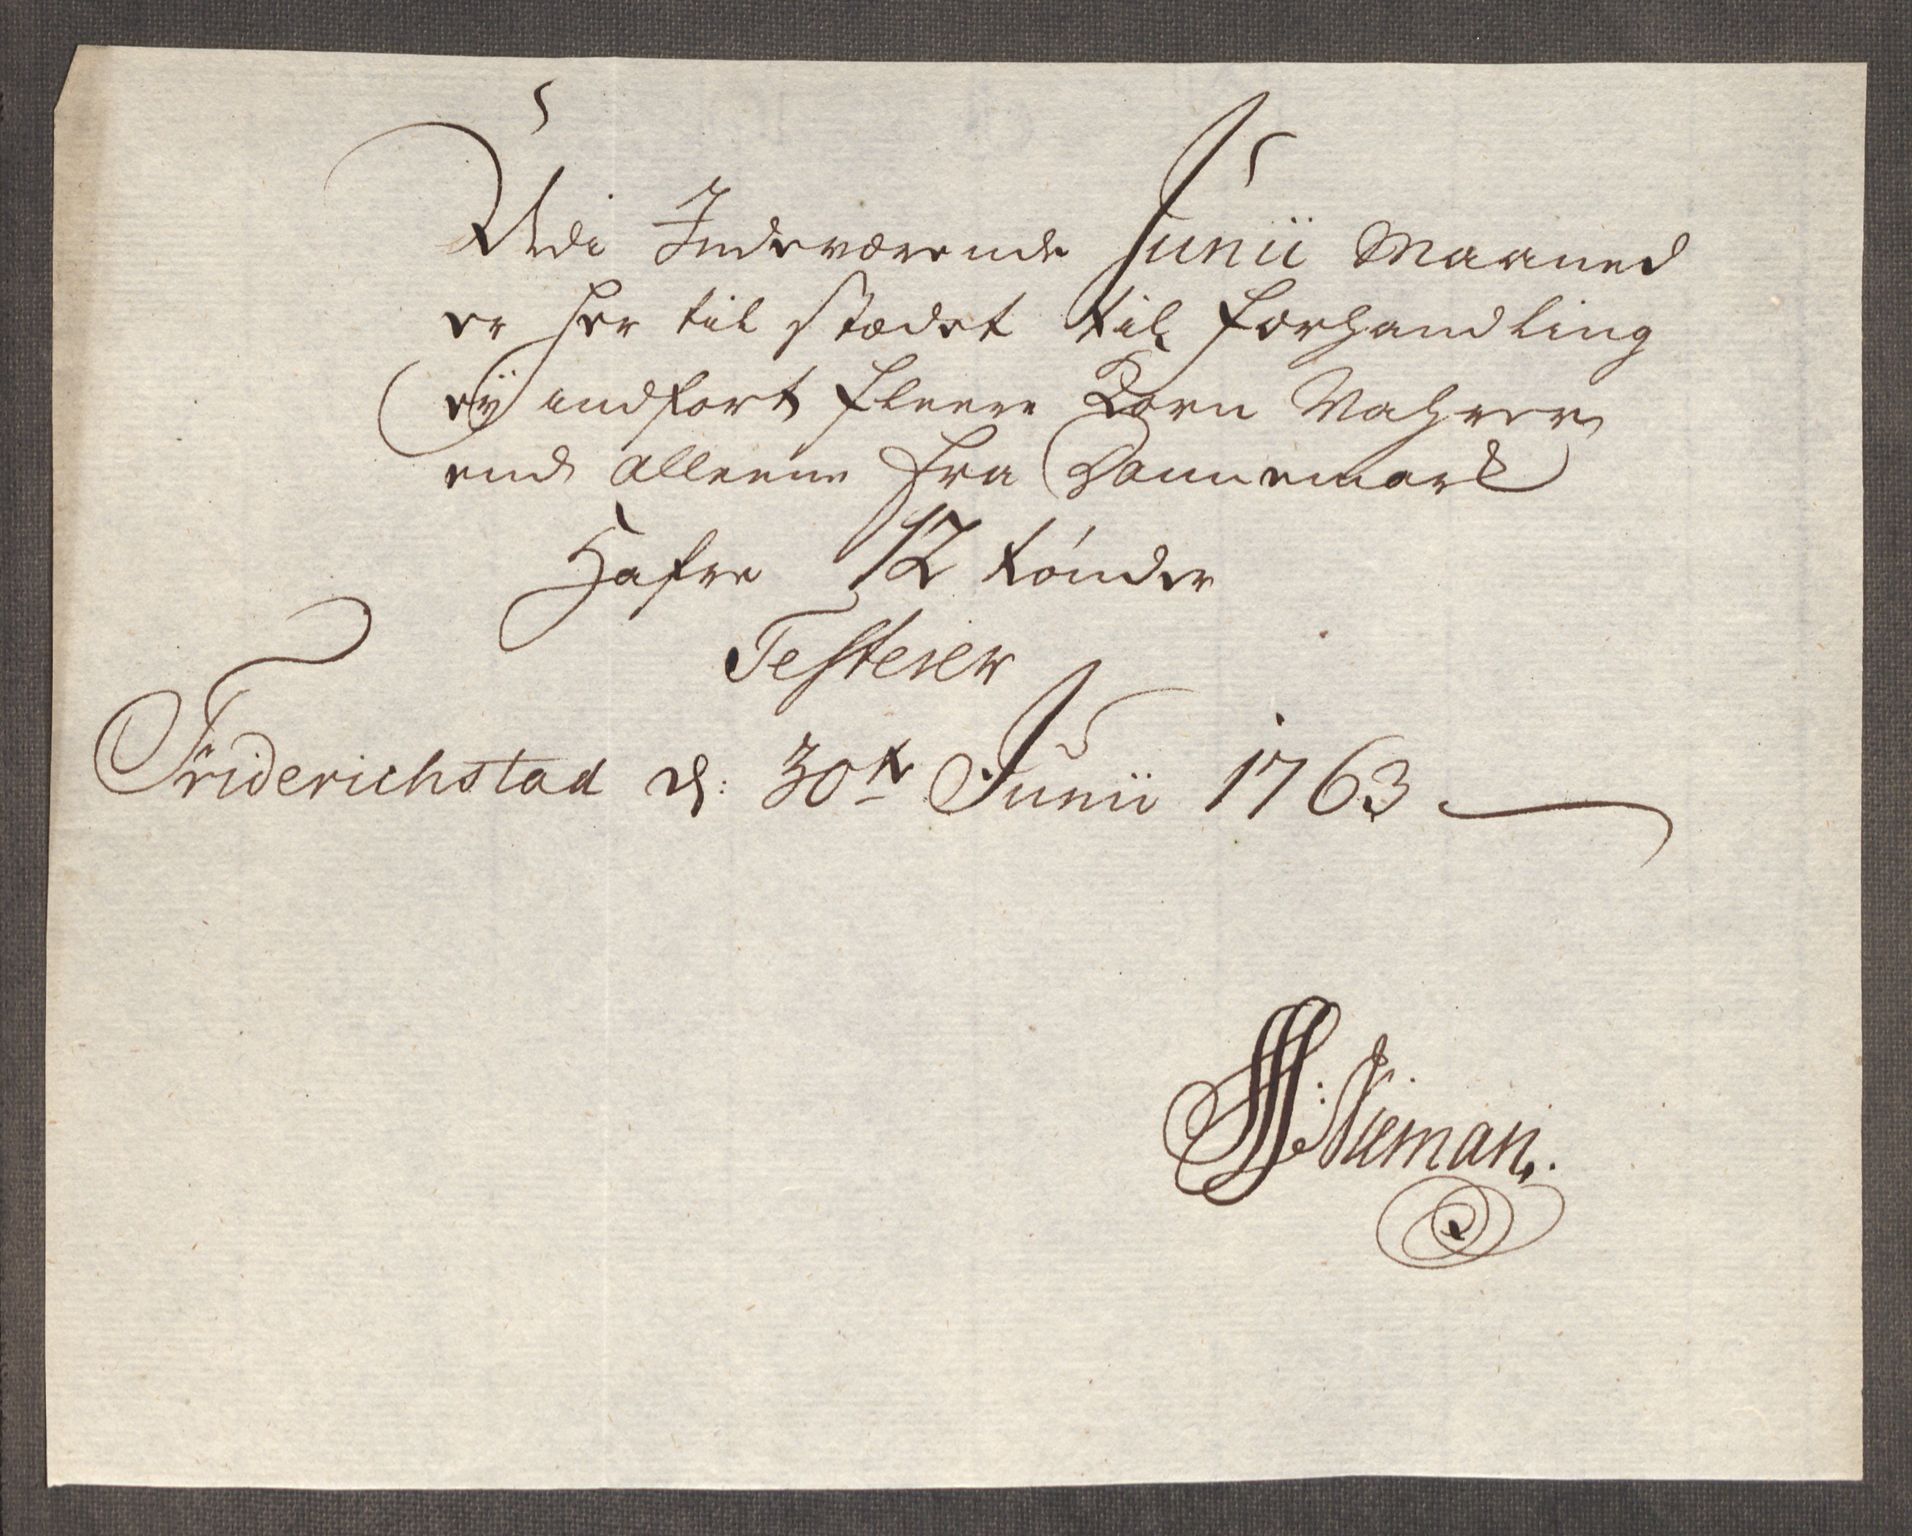 Udi Indeværende Junii Maaned
er her til stædet til forhandling
eÿ indført fleere Korn Vahrer
end alleene fra Dannemark
Hafre 12 tónder
Testerer
Friderichstad d: 30te Junii 1763
Nieman.